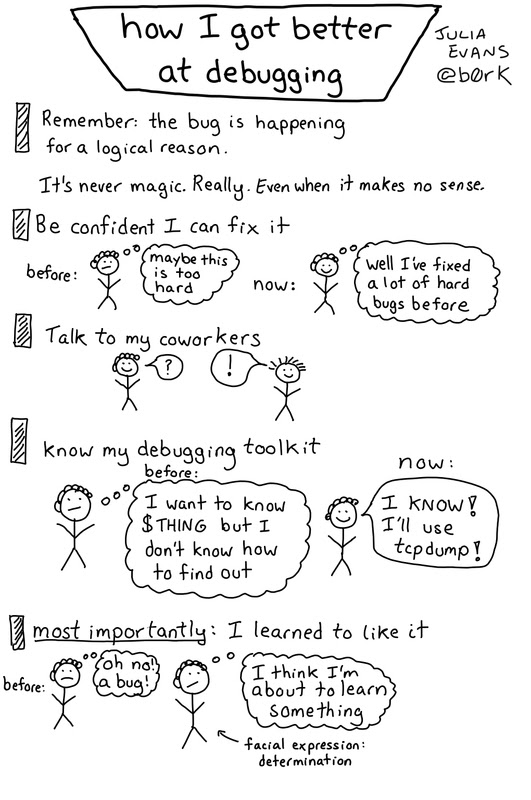 how I got better
at debugging
JULIA
EVANS
@b0rk
Remember: the bug is happening
for a logical reason.
It's never magic. Really. Even when it makes no sense.
Be confident I can fix it
before:
maybe this
is too
hard
now:
well I've fixed
a lot of hard
bugs before
Talk to my coworkers
?
!
know my debugging toolkit
before:
I want to know
$THING but I
don't know how
to find out
now:
I KNOW!
I'll use
tcpdump!
most importantly: I learned to like it
before:
oh no!
a bug!
I think I'm
about to learn
something
facial expression:
determination